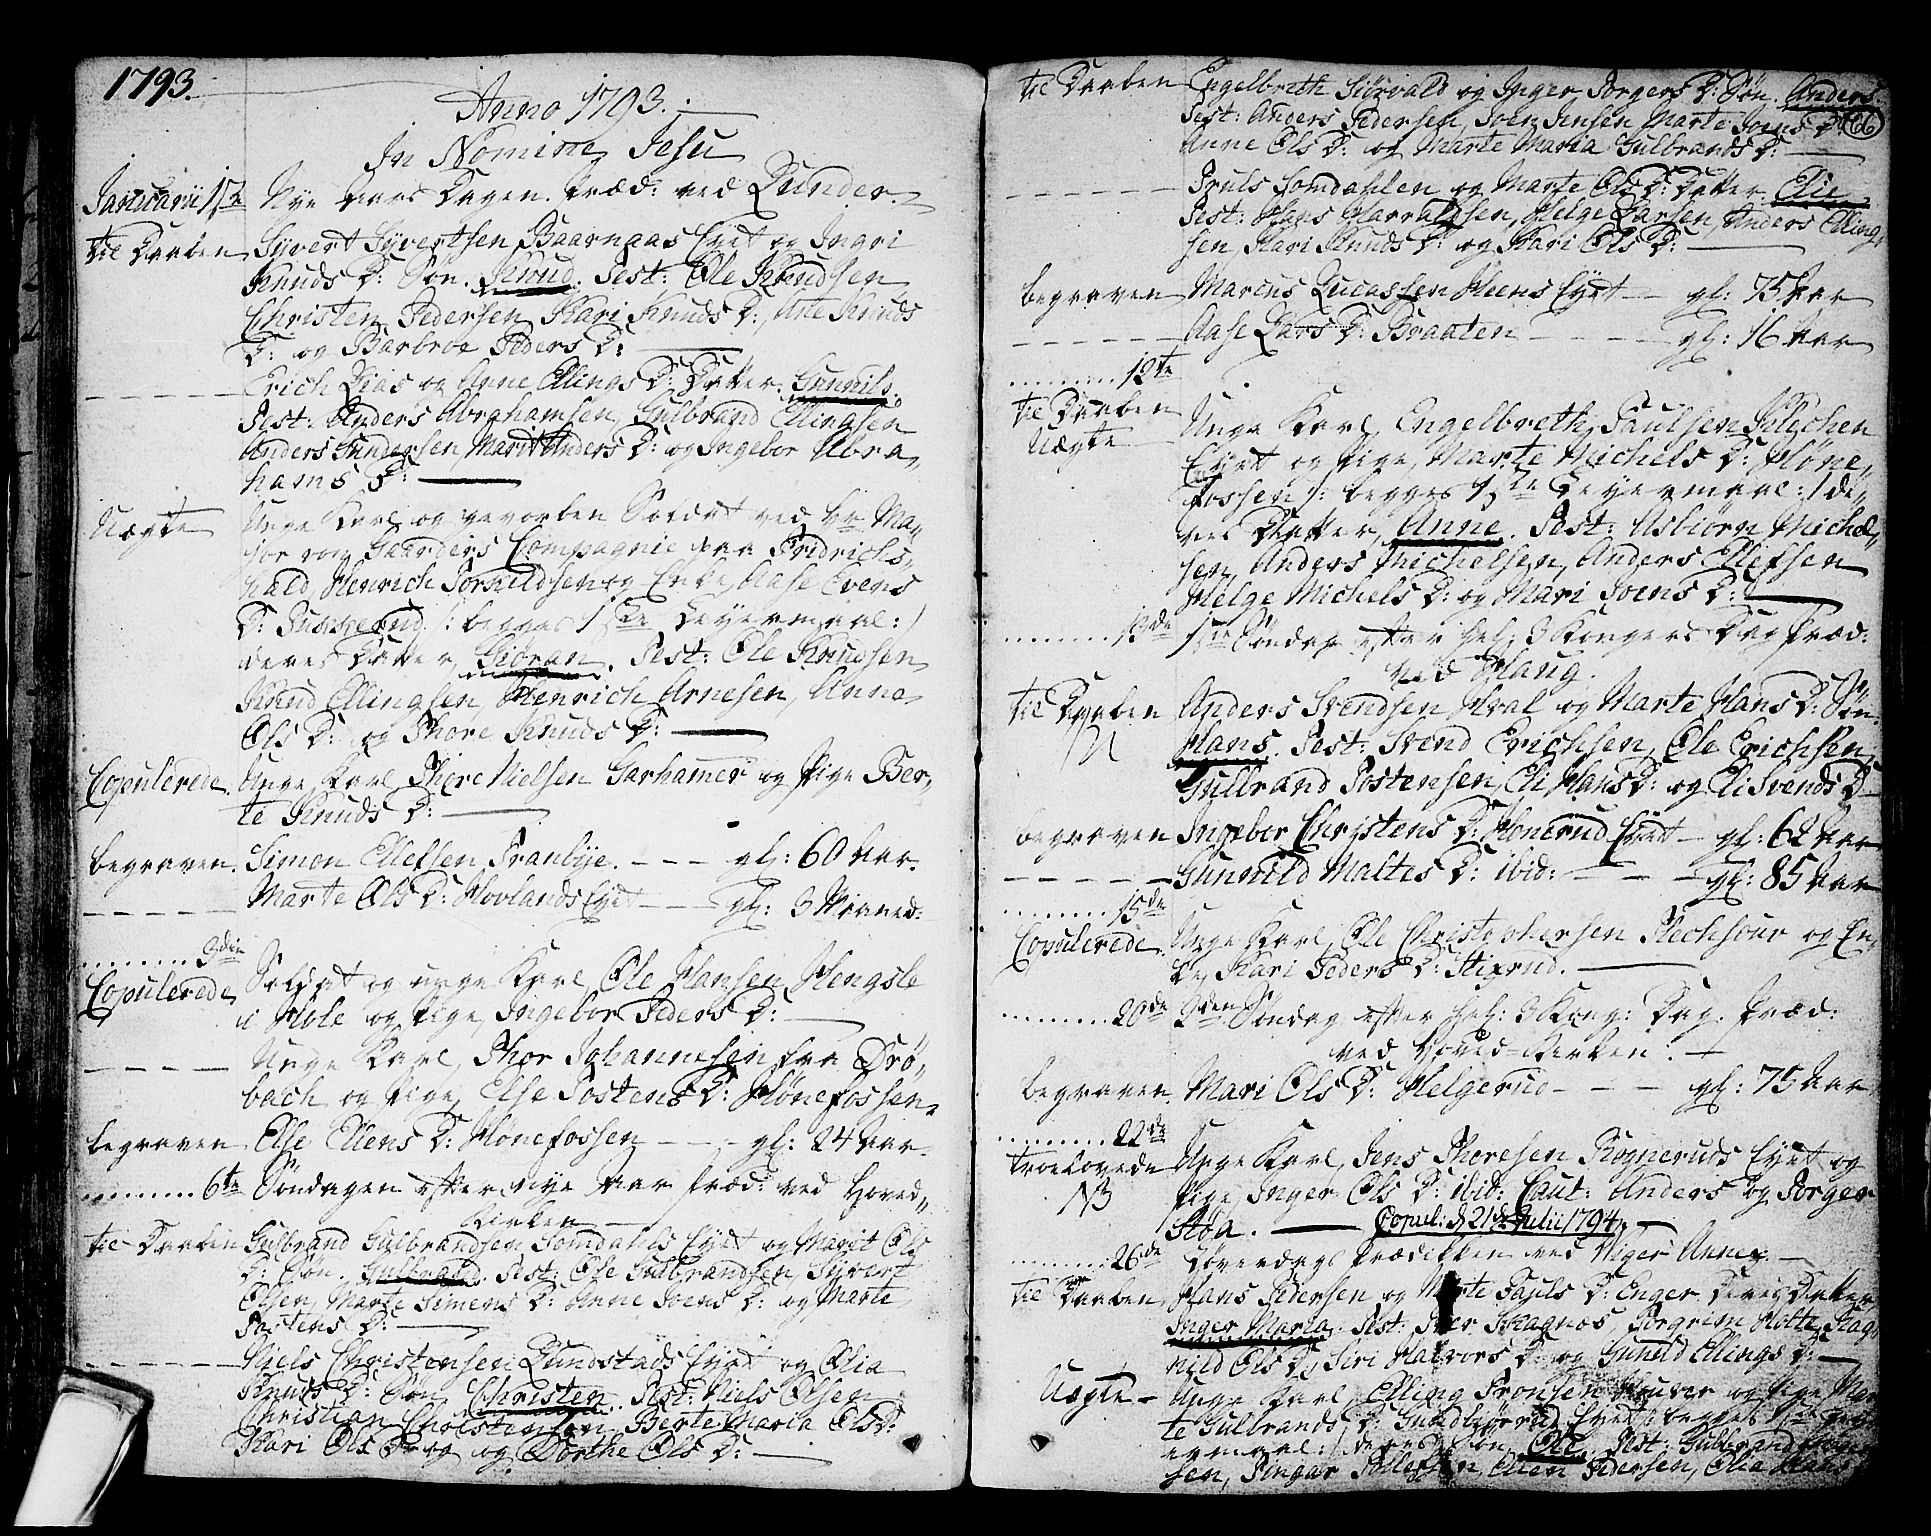 1793.
Anno 1793.
In Nomine Jesu
Januarii 1ste Nye Aars Dagen. Præd: ved Lunder.
til Daaben Syvert Syvertsen Baarnaas Eyet og Ingri
Knuds D: Søn. Knud. Test: Ole Knudsen
Christen Pedersen, Kari Knuds D:, Anne Knuds
D: og Barbroe Peders D:
Erich Lias og Anne Ellings D: Datter. Gunnild.
Test: Anders Abrahamsen, Gulbrand Ellingsen
Anders Gundersen, Marit Anders D: og Ingebor Abra
hams D:
Uægte Unge Karl og gevorben Soldat ved Hr. Ma-
jor von Compagnie paa Fridrichs-
hald, Henrich Torkildsen og Enke, Aase Evens
D: /: begges 1ste Leyermaal :/
deres Datter, Giøran. Test: Ole Knudsen
Knud Ellingsen, Henrich Arnesen, Anne
Ols D: og Thore Knuds D:
Copulerede. Unge Karl Thore Nielsen Garhamer og Pige Ber-
te Knuds D:
begraven. Simon Ellefsen Tranbye. gl: 60 Aar.
Marte Ols D: Hovlands Eyet gl: 3 Maaned:
3die
Copulerede Soldat og unge Karl Ole Hansen Hengsle
i Hole og Pige, Ingebor Peders D:
Unge Karl, Thor Johannesen fra Drø-
bach og Pige, Else Tostens D: Hønefossen.
begraven Else Ellens D: Hønefossen gl: 24 Aar.
6te Søndagen efter nye Aar Præd: ved Hoved-
Kirken
til Daaben Gulbrand Gulbrandsen Somdahls Eyet og Marit Ols
D: Søn. Gulbrand. Test: Ole Gulbrandsen, Syvert
Olsen, Marte Simens D: Anne Joens D: og Marte
Tostens D:
Niels Christensen Lundstads Eyet og Olia
Knuds D: Søn Christen. Test: Niels Olsen
Christian Christensen Berte Maria Ols D:
Kari Ols D: og Dorthe Ols D:
til Daaben Engelbreth Siørvald og Inger Torgers D: Søn. Anders.
Test: Anders Pedersen, Joen Jensen, Marte Joens D: 66
Anne Ols D: og Marte Maria Gulbrands D:
Truls Somdahlen og Marte Ols D: Datter Elie
Test: Hans Harraldsen, Helge Larsen, Anders Elling-
sen, Kari Knuds D: og Kari Ols D:
begraven Marcus Lucassen Heens Eyet gl: 75 Aar
Aase Lars D: Braaten gl: 16 Aar
12te
til Daaben
Uægte Unge Karl, Engelbreth Paulsen
Eyet og Pige, Marte Michels D: Høne-
fossen /: begges 1ste Leyermaal :/ de-
res Datter, Anne. Test: Asbiørn Michel-
sen, Anders Michelsen, Anders Ellefsen
Helge Michels D: og Mari Joens D:
13de 1ste Søndag efter Hel: 3 Kongers Dag Præd:
ved Haug.
til Daaben Anders Svendsen Hval og Marte Hans D: Søn
Hans. Test: Svend Erichsen, Ole Erichsen,
Gulbrand Tostensen, Eli Hans D: og Eli Svends D:
begraven Ingebor Christens D: Honerud Eyet gl: 62 Aar
Gunnild Maltes D: ibid: gl: 85 Aar
15de
Copulerede. Unge Karl, Ole Christophersen og En-
ke, Kari Peders D:
20de 2den Søndag efter Hel: 3 Kong: Dag. Præd:
ved Hoved-Kirken.
begraven. Mari Ols D: Helgerud gl: 75 Aar
22de
trolovede Unge Karl, Jens Thoresen Rognerud Eyet og
NB Pige Inger Ols D: ibid: Caut: Anders og Torger
Støa. Copul: d 21de Julii 1794.
26de Løverdags Prædikken ved Viger Annex.
til Daaben Hans Pedersen og Marte Pauls D: Enger Deres Datter
Inger Maria. Test: Peer Skagnæs, Torgrim Holte, Rag-
nild Ols D:, Siri Halvors D: og Gunild Ellings D:
Uægte Unge Karl, Elling Tronsen og Pige Mar-
te Gulbrands D: Eyet /: begges 1ste Ley-
ermaal :/ deres Søn, Ole. Test: Gulbrand
sen, Ellen Pedersen, Olia Hans